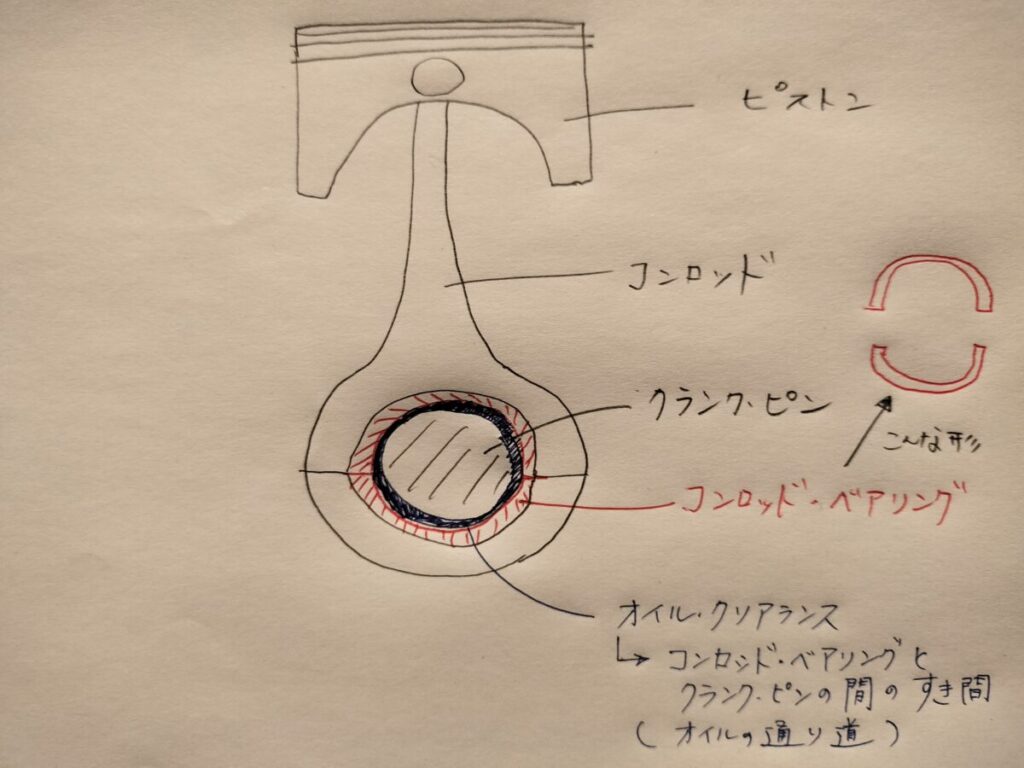 ピストン
コンロッド
クランク・ピン
こんな形
コンロッド・ベアリング
オイル・クリアランス
↳ コンロッド・ベアリングと
クランク・ピンの間のすき間
(オイルの通り道)